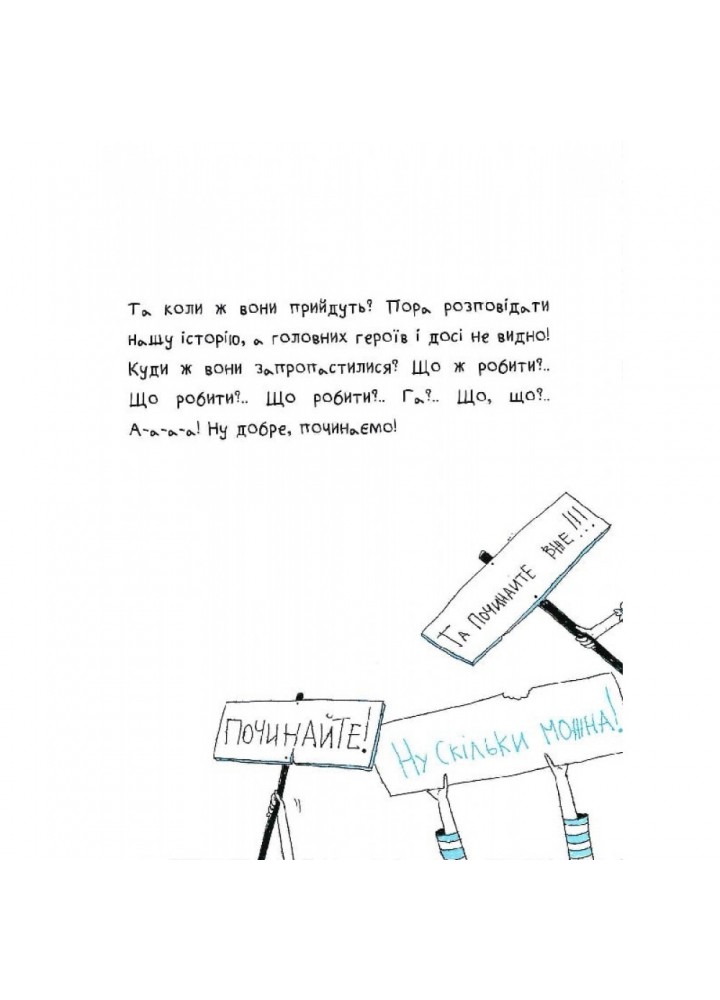 Та коли ж вони прийдуть? Пора розповідати
нашу історію, а головних героїв і досі не видно!
Куди ж вони запропастилися? Що ж робити?..
Що робити?.. Що робити?.. Га?.. Що, що?..
А-а-а-а! Ну добре, починаємо!
Та починайте вже!!!
Починайте!
Ну скільки можна!